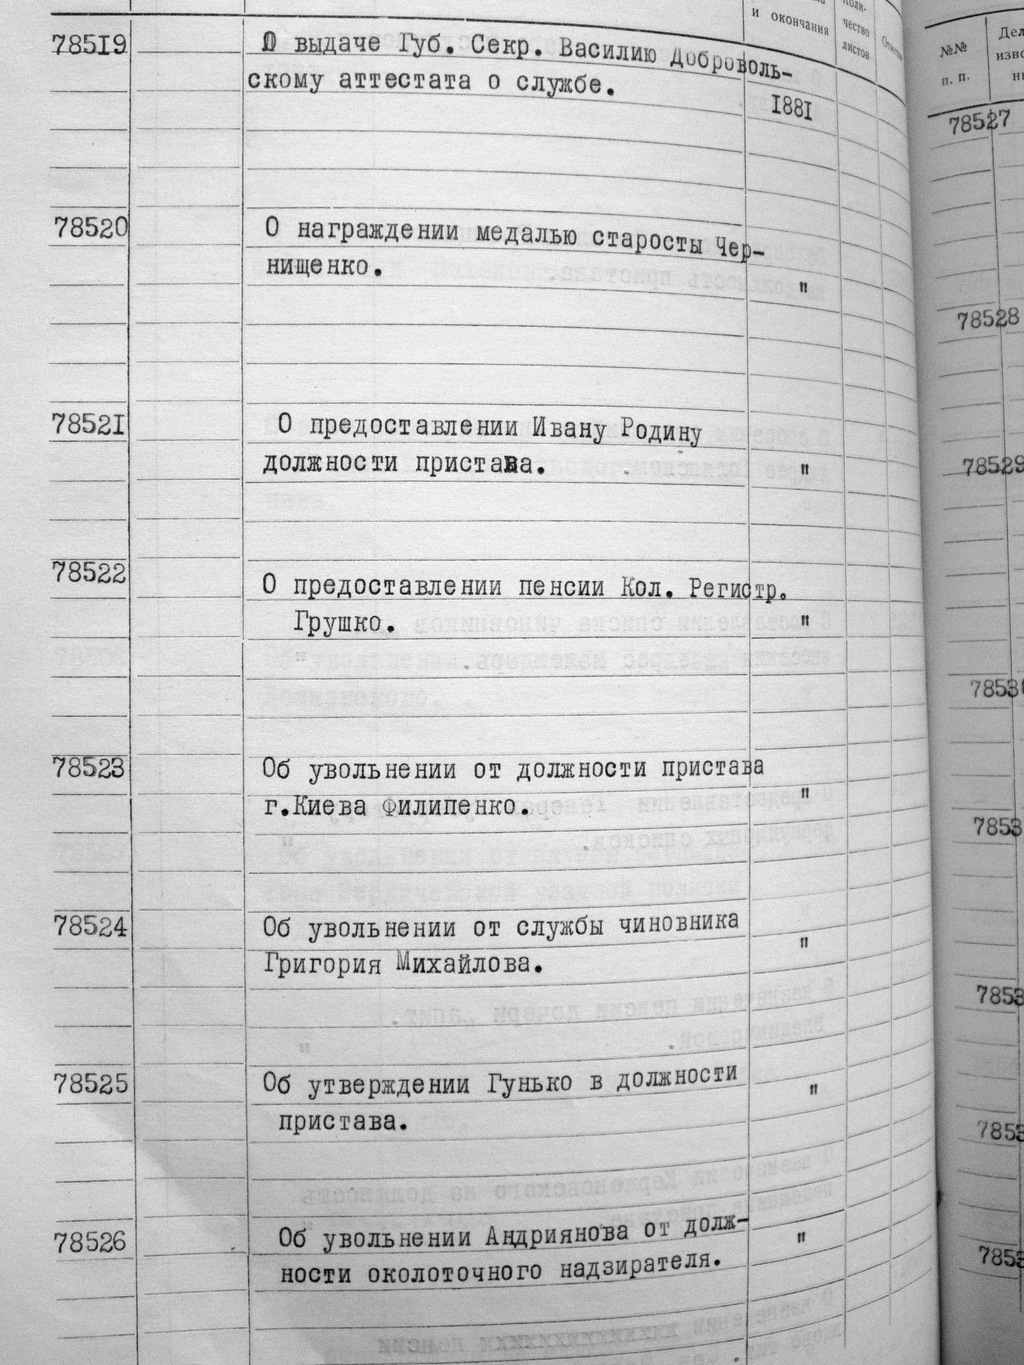 и окончания
Коли-
чество
листов
78519
О выдаче Губ. Секр. Василию Доброволь-
скому аттестата о службе.
1881
78520
О награждении медалью старосты Чер-
нищенко.
"
78521
О предоставлении Ивану Родину
должности пристава.
"
78522
О предоставлении пенсии Кол. Регистр.
Грушко.
"
78523
Об увольнении от должности пристава
г.Киева Филипенко.
"
78524
Об увольнении от службы чиновника
Григория Михайлова.
"
78525
Об утверждении Гунько в должности
пристава.
"
78526
Об увольнении Андриянова от долж-
ности околоточного надзирателя.
"
№№
п. п.
78527
78528
78529